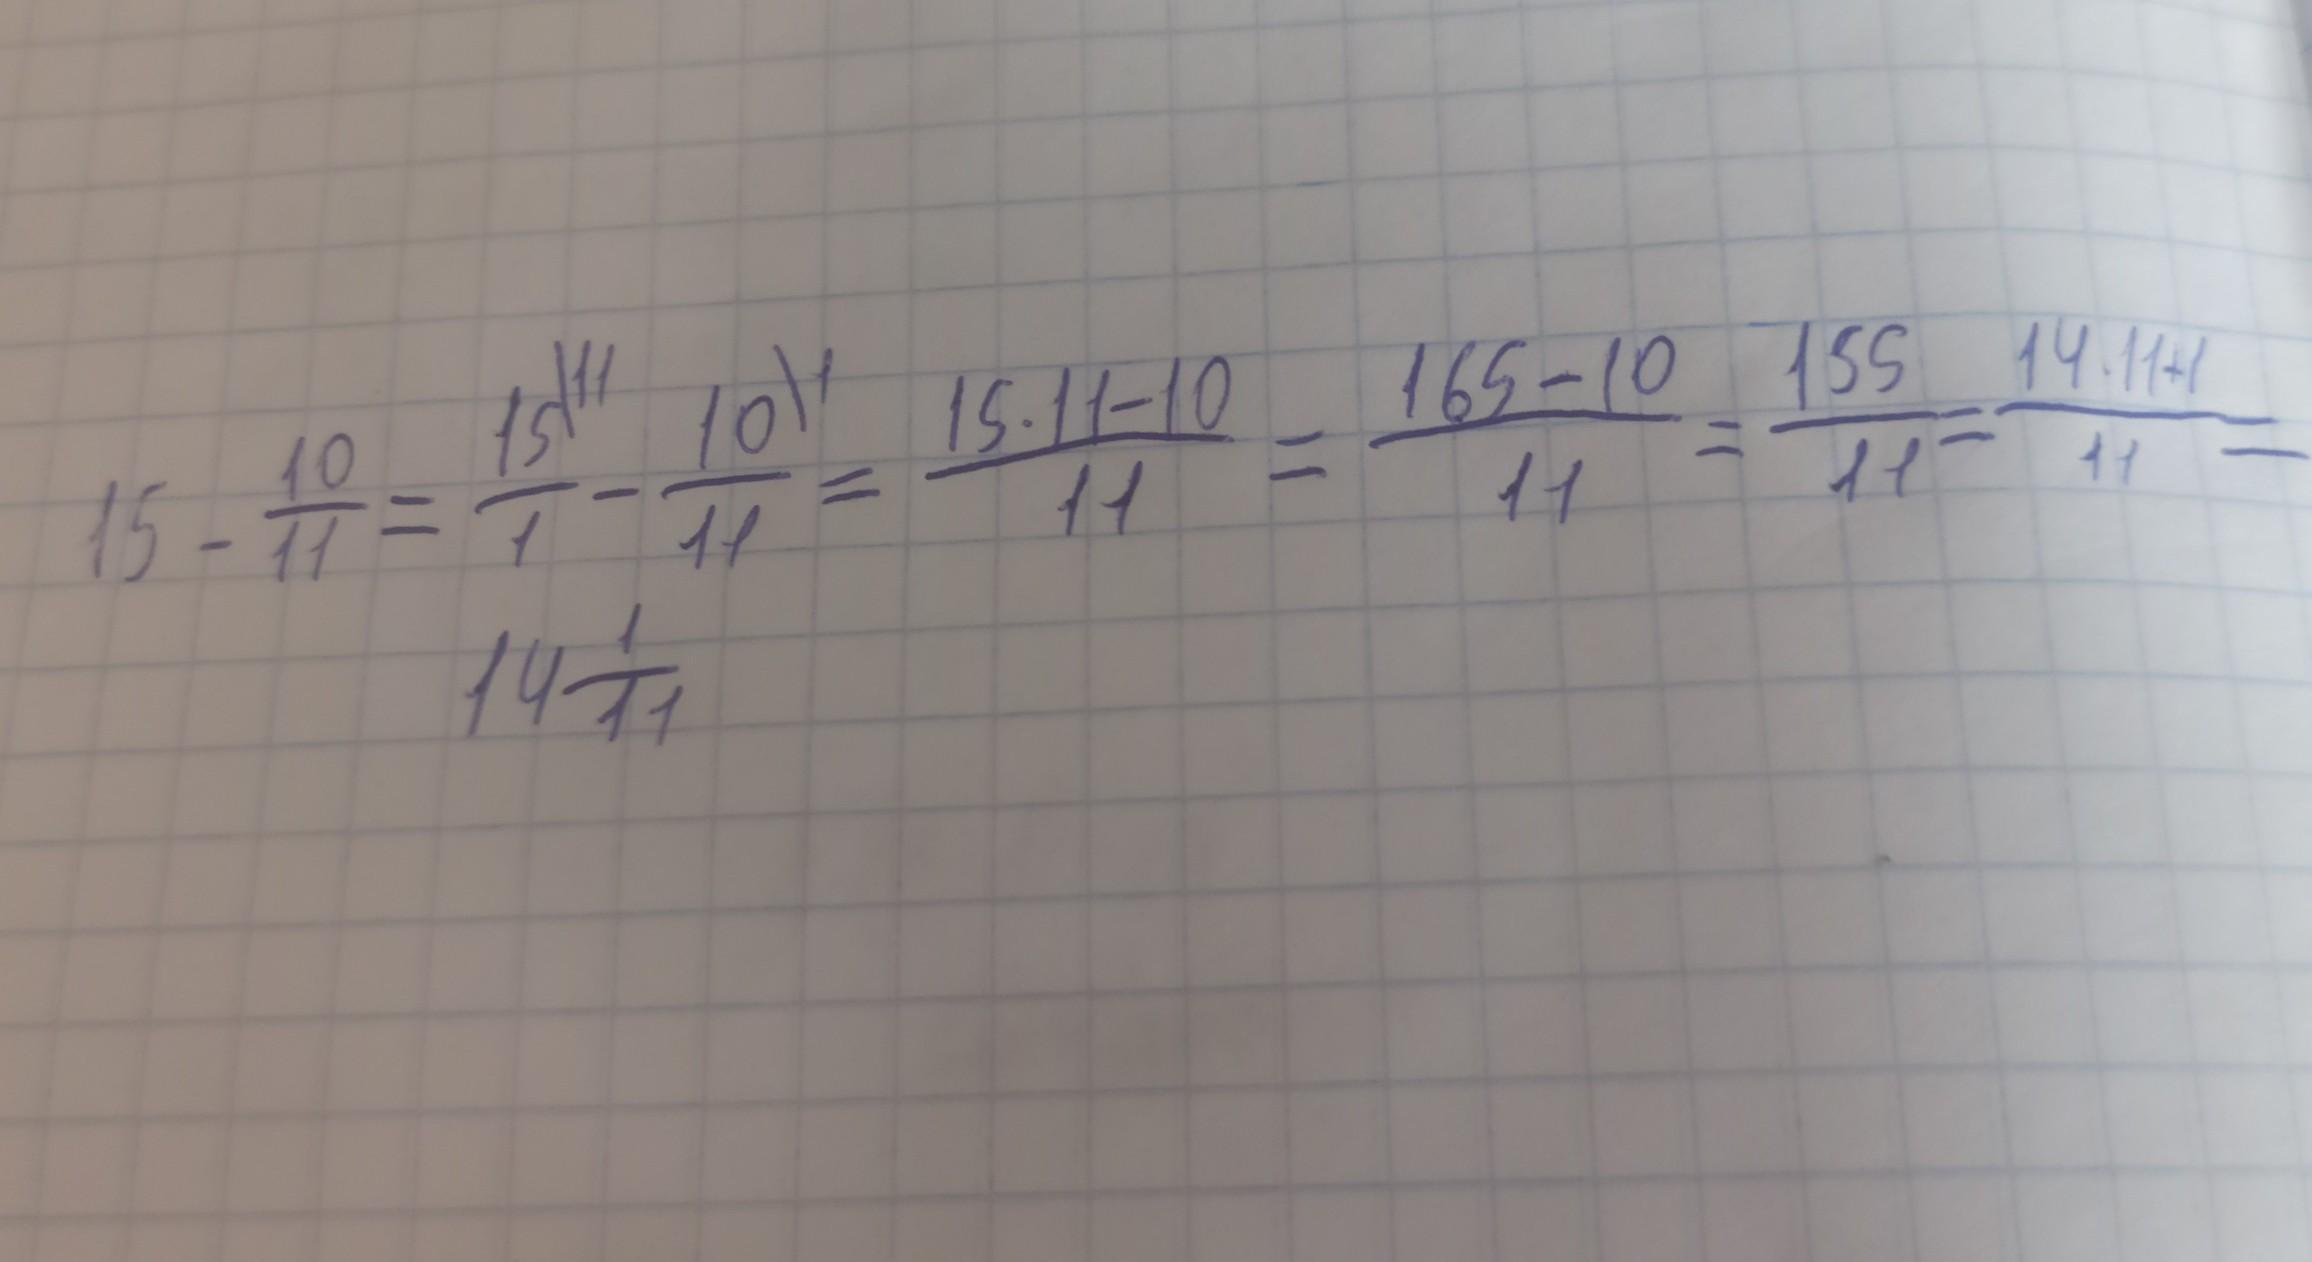 15 - 10/11 = 15\11/1 - 10\1/11 = 15·11-10/11 = 165-10/11 = 155/11 = 14·11+1/11 =
14 1/11